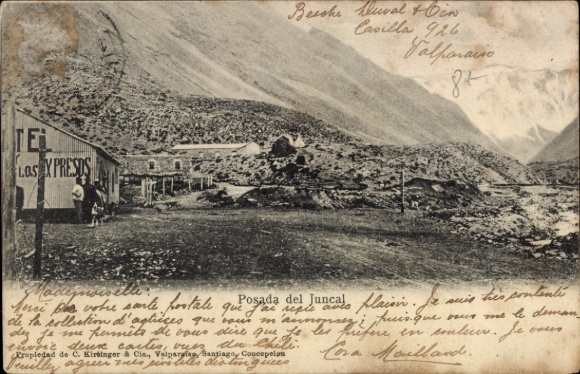 Beeche Duval & Cia
Casilla 926
Valparaiso
8
TE
LOS EXPRESOS
Posada del Juncal
Mademoiselle:
Merci par votre carte postale que j'ai reçu avec plaisir. Je suis très contente
de la collection d'actrices que vous m'annoncez; puisque vous me le deman
dez je me permets de vous dire que je les préfère en couleur. Je vous
envoie deux cartes, vues du Chili.
Veuillez agréer mes civilités distinguées
Cora Maillard.
Propiedad de C. Kirsinger & Cia., Valparaiso, Santiago, Concepcion